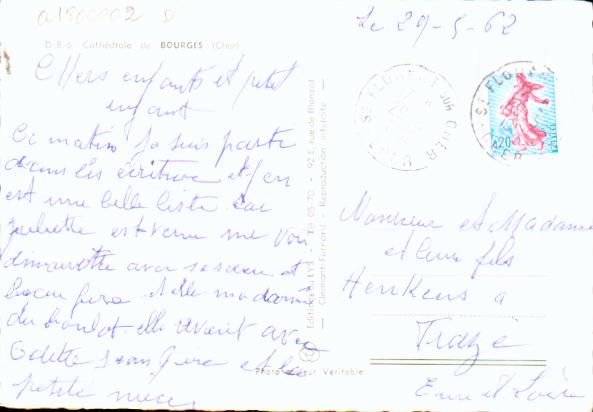 a1500002 D
Le 29-5-62
D.B-6 Cathédrale de BOURGES (Cher)
Chers enfants et petit
enfant
Ce matin je suis parti
dans les écriture et j'en
est une belle liste car
juliette est venu me voir
dimanche avec sa seur et
beau frere et elle ma donné
du boulot elle revient avec
Odette Jean frere et la
petite niece.
Editions du LYS - Tél 05-70 - 92 E rue de Blanzat
Clermont-Ferrand - Reproduction interdite
Photo Couleur Véritable
ST FLORENT SUR CHER
ST FLORENT
CHER
0,20
Monsieur et Madame
et leur fils
Henkens a
Trazé
Eure et Loire